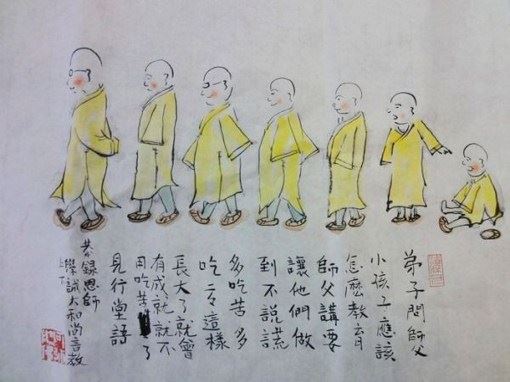 弟子問師父
小孩子應該
怎麼教育
師父講要
讓他們做
到不說謊
多吃苦多
吃亏這樣
長大了就會
有成就就不
用吃苦了
見行堂語
恭錄恩師
上學下誠大和尚言教